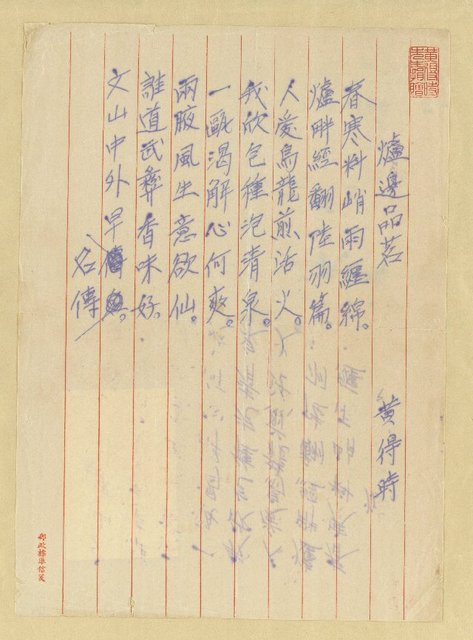 爐邊品茗
黃得時
春寒料峭雨纏綿。
爐畔經翻陸羽篇。
人愛烏龍煎活火。
我欣包種泡清泉。
一甌渴解心何爽。
兩腋風生意欲仙。
誰道武彝香味好。
文山中外早
名傳
郵政標準信箋